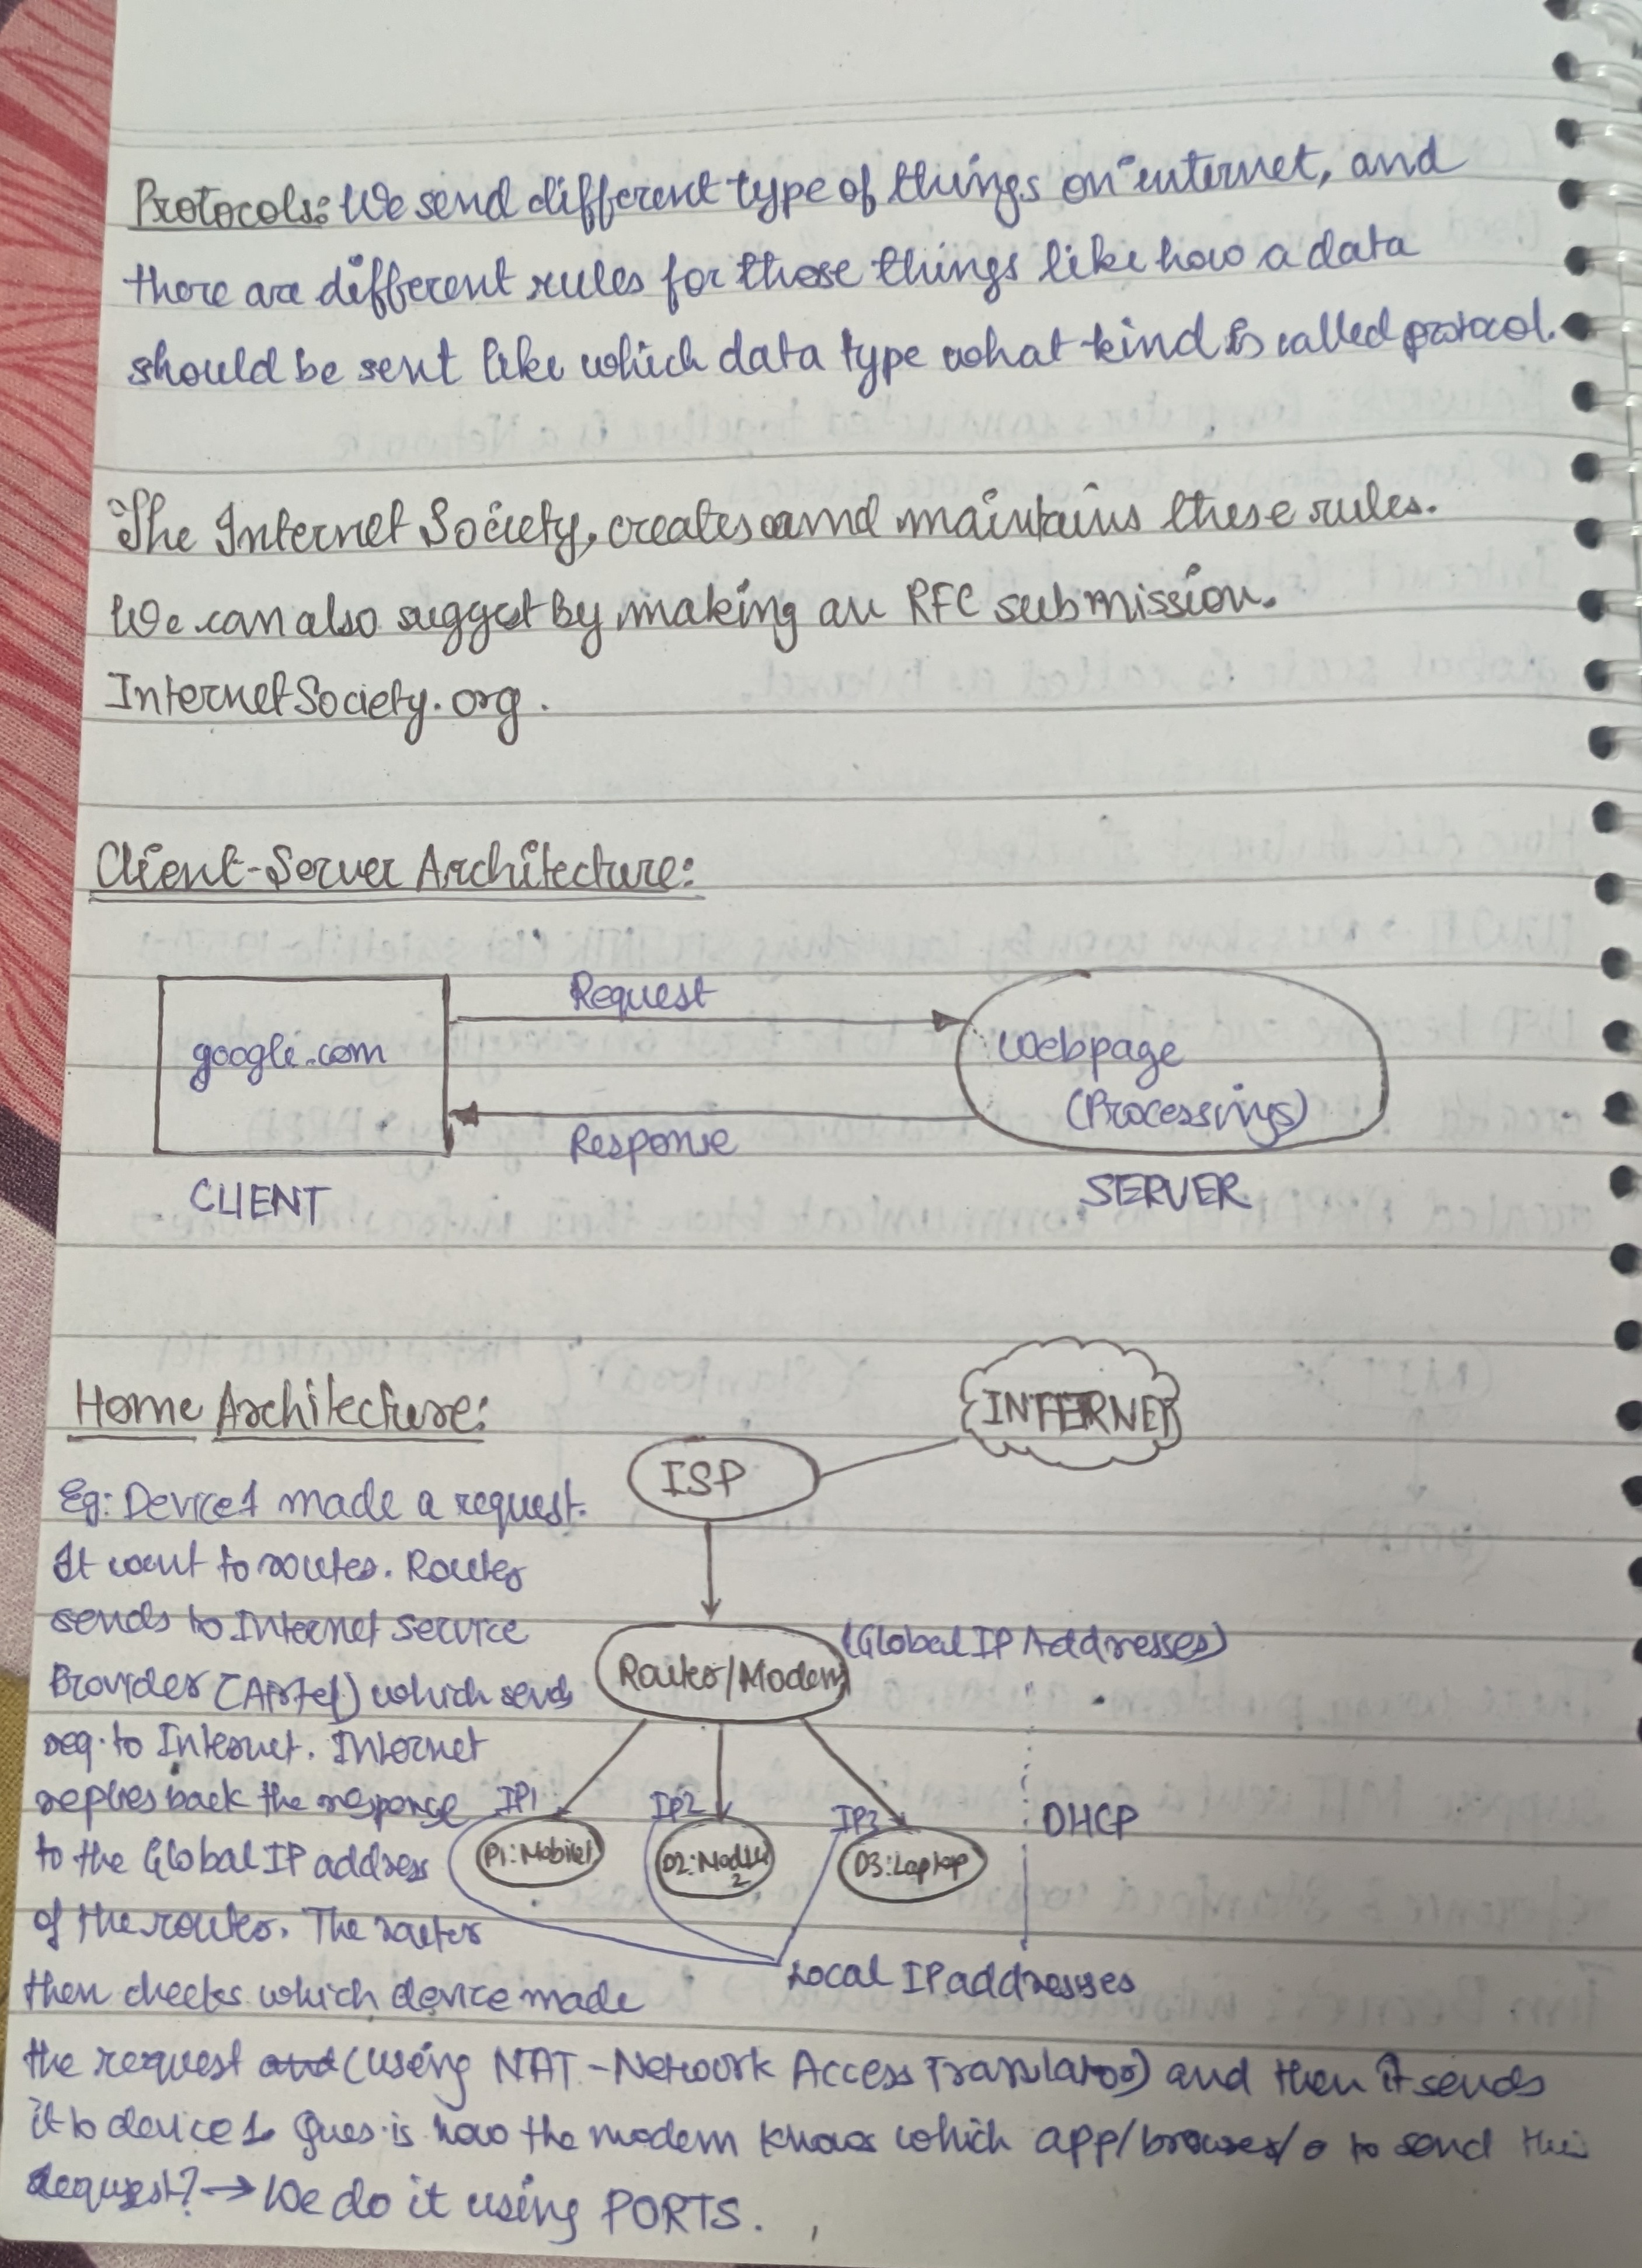 Protocols: We send different type of things on internet, and
there are different rules for these things like how a data
should be sent like which data type what kind is called protocol.
The Internet Society, creates and maintains these rules.
We can also suggest by making an RFC submission.
InternetSociety.org.
Client-Server Architecture:
Request
google.com
Webpage
(Processings)
Response
CLIENT
SERVER
Home Architecture:
INTERNET
ISP
Eg: Device1 made a request.
It went to router. Router
sends to Internet Service
Provider (Airtel) which sends
req. to Internet. Internet
replies back the response
to the Global IP address
of the router. The router
then checks which device made
the request and (using NAT - Network Access Translator) and then it sends
it to device 1. Ques. is how the modem knows which app/browser/ to send this
request? → We do it using PORTS.
Router/Modem
(Global IP Addresses)
IP1
IP2
IP3
DHCP
D1: Mobile1
D2:
2
D3: Laptop
Local IP addresses